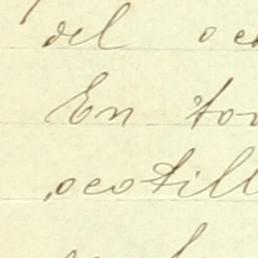 del oc
En to
ocotill